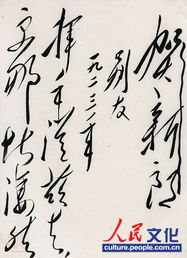 贺新郎
别友
一九二三年
挥手从兹去。
更那堪凄然
人民文化
culture.people.com.cn